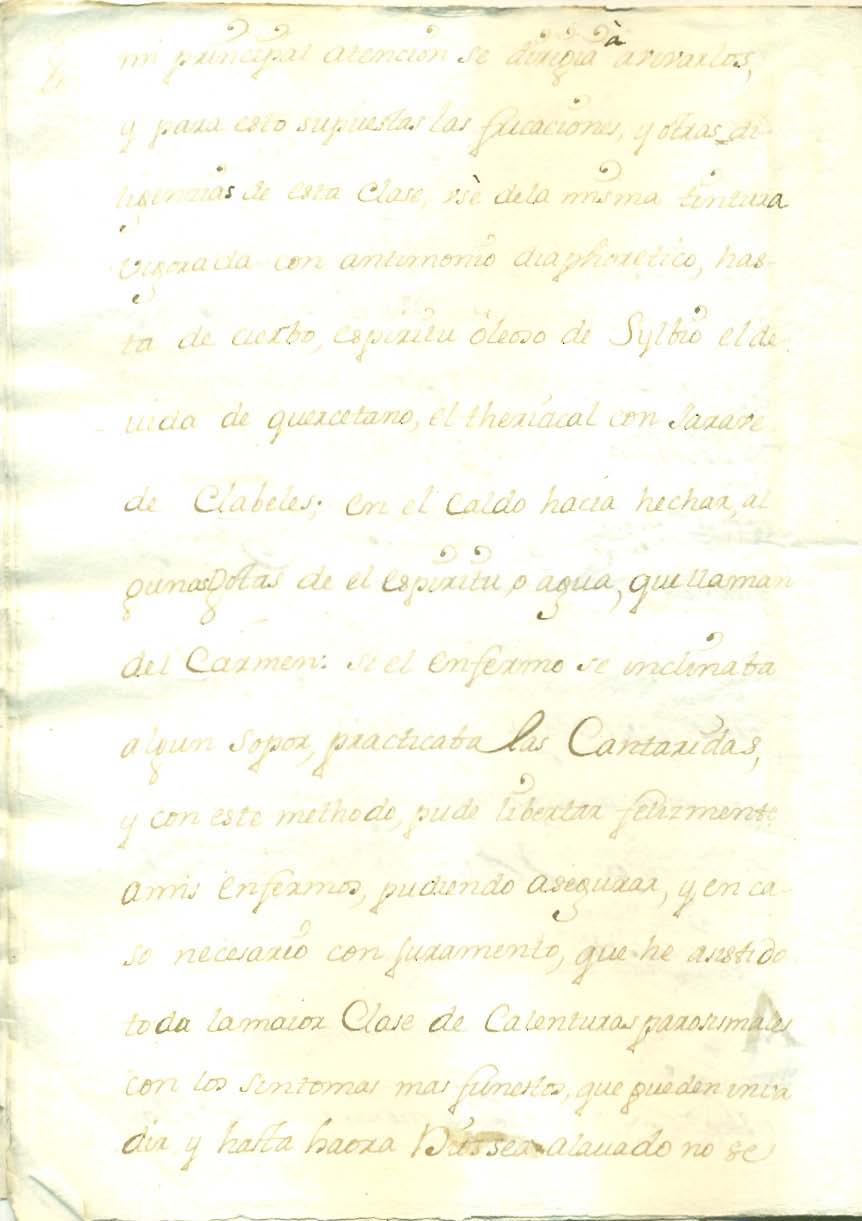 mi principal atencion se dirigia à avivarlos,
y para esto supuestas las fricaciones, y otras di-
ligencias de esta Clase, vsè dela misma tintura
vigorada con antimonio diaphoretico, has-
ta de cierbo, espiritu oleoso de Sylbio el de
vida de quercetano, el theriacal con Jarave
de Clabeles; en el caldo hacia hechar, al
gunas gotas de el espiritu, o agua, que llaman
del Carmen: si el enfermo se inclinaba
algun sopor, practicaba las Cantaridas,
y con este methodo, pude libertar felizmente
amis enfermos, pudiendo asegurar, y en ca-
so necesario con juramento, que he asistido
toda la maior Clase de Calenturas parosismales
con los sintomas mas funestos, que pueden inva
dir y hasta haora Dios sea alavado no se